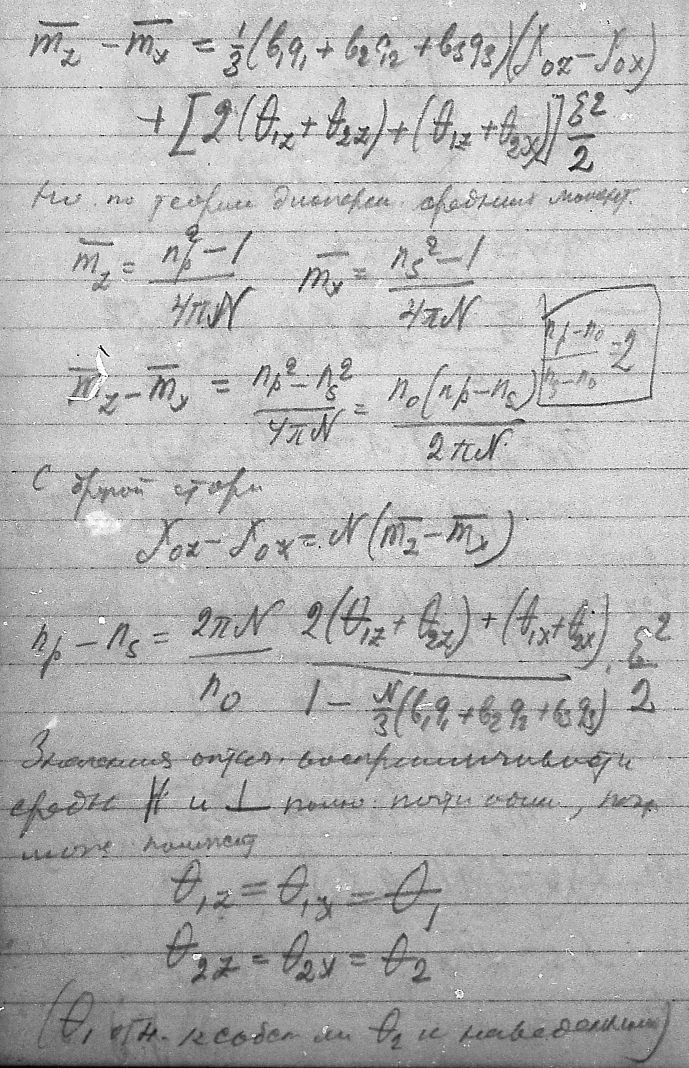 m̄_z − m̄_x = 1/3 (b₁q₁ + b₂q₂ + b₃q₃)(γ_0z − γ_0x)
+ [2(θ_1z + θ_2z) + (θ_1z + θ_2x)] ξ²/2
Но по теории дисперси средний момент
m̄_z = (n_p² − 1)/(4πN) m̄_x = (n_s² − 1)/(4πN)
m̄_z − m̄_x = (n_p² − n_s²)/(4πN) = n₀(n_p − n_s)/(2πN) (n_p − n₀)/(n_s − n₀) = 2
С другой сторы
γ_0z − γ_0x = N(m̄_z − m̄_x)
n_p − n_s = 2πN/n₀ · (2(θ_1z + θ_2z) + (θ_1x + θ_2x))/(1 − N/3 (b₁q₁ + b₂q₂ + b₃q₃)) · ξ²/2
Значения оптич. восприимчивости
среды ∥ и ⊥ полю почти одни,
може
θ_1z = θ_1x = θ₁
θ_2z = θ_2x = θ₂
(θ₁ отн. к собст θ₂ к наведенным)